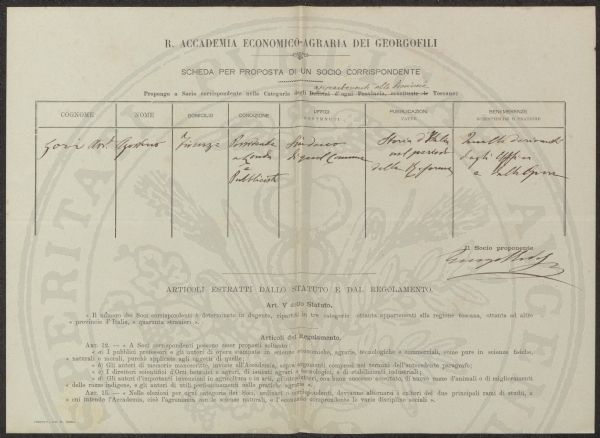 R. ACCADEMIA ECONOMICO-AGRARIA DEI GEORGOFILI
SCHEDA PER PROPOSTA DI UN SOCIO CORRISPONDENTE
appartenenti alle Provincie
Propongo a Socio corrispondente nella Categoria degli d'ogni Provincia, eccettuate le Toscane:
COGNOME NOME DOMICILIO CONDIZIONE UFFICI SOSTENUTI PUBBLICAZIONI FATTE BENEMERENZE
Gori Avv. Agostino Firenze Sindaco Storia d'Italia Quelle derivanti
a Londa di quel Comune nel periodo dagli Uffici
e Pubblicista della Riforma e dalle Opere
Il Socio proponente
ARTICOLI ESTRATTI DALLO STATUTO E DAL REGOLAMENTO.
Art. V dello Statuto.
« Il numero dei Soci corrispondenti è determinato in dugento, ripartiti in tre categorie: ottanta appartenenti alla regione toscana, ottanta ad altre
« provincie d'Italia, e quaranta stranieri ».
Articoli del Regolamento.
ART. 12. — « A Soci corrispondenti possono esser proposti soltanto:
« a) I pubblici professori e gli autori di opere stampate in scienze economiche, agrarie, tecnologiche e commerciali, come pure in scienze fisiche,
« naturali o morali, purchè applicate agli oggetti di quelle;
« b) Gli autori di memorie manoscritte, inviate all'Accademia, sopra argomenti compresi nei termini dell'antecedente paragrafo;
« c) I direttori scientifici d'Orti botanici e agrari, di istituti agrari e tecnologici, e di stabilimenti industriali;
« d) Gli autori d'importanti invenzioni in agricoltura o in arti, gl'introduttori, con buon successo accertato, di nuove razze d'animali o di miglioramenti
« delle razze indigene, e gli autori di utili perfezionamenti nelle pratiche agrarie.
ART. 15. — « Nelle elezioni per ogni categoria dei Soci, ordinari o corrispondenti, devranno alternarsi i cultori dei due principali rami di studii, a
« cui intende l'Accademia, cioè l'agronomia con le scienze naturali, e l'economia comprendente le varie discipline sociali ».